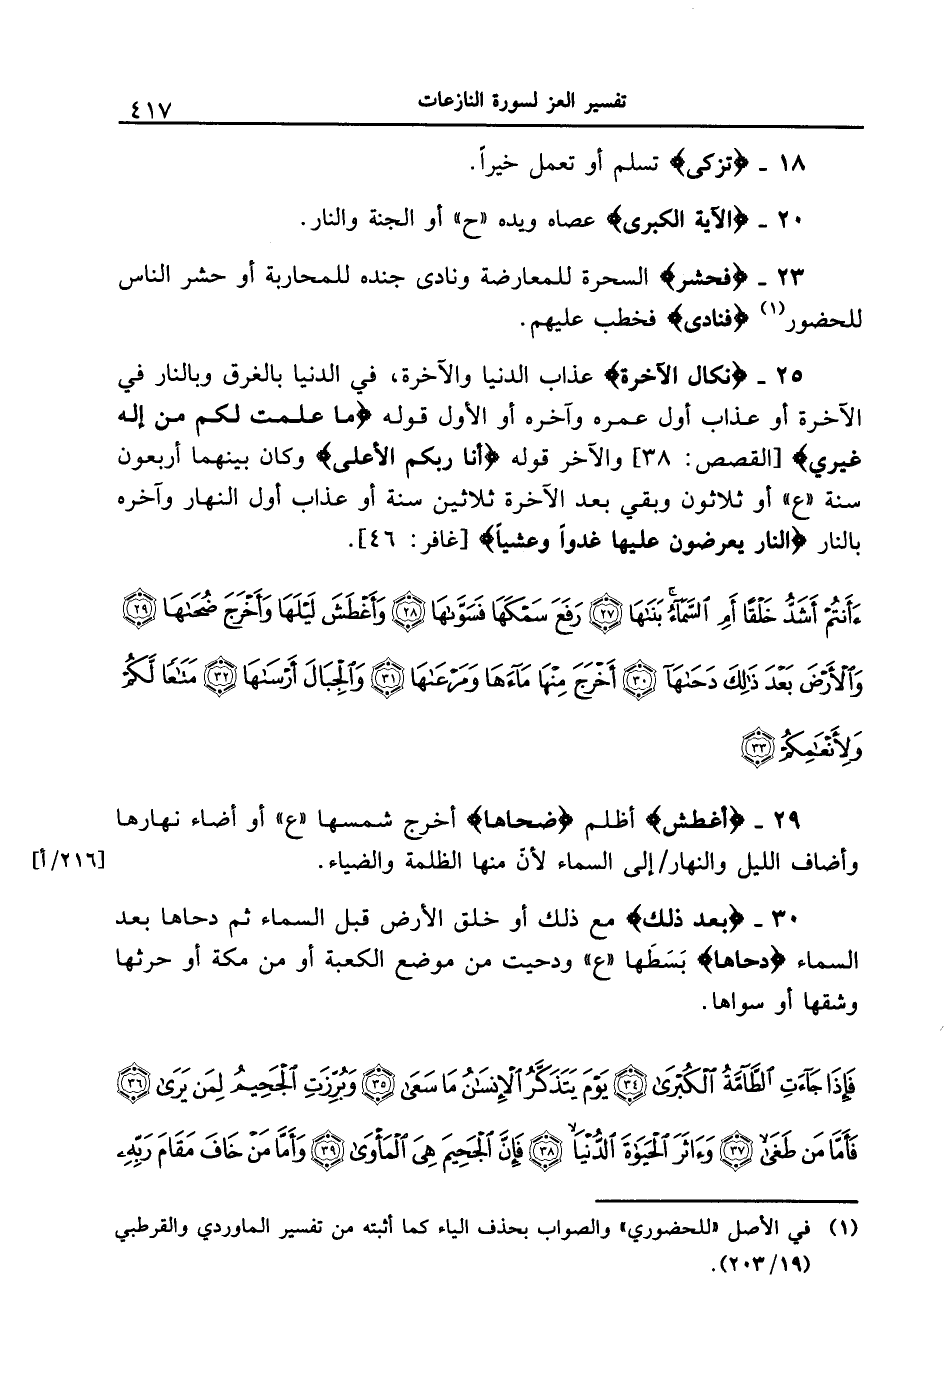 تفسير العز لسورة النازعات ٤١٧
١٨ ـ ﴿تزكى﴾ تسلم أو تعمل خيراً.
٢٠ ـ ﴿الآية الكبرى﴾ عصاه ويده «ح» أو الجنة والنار.
٢٣ ـ ﴿فحشر﴾ السحرة للمعارضة ونادى جنده للمحاربة أو حشر الناس
للحضور(١) ﴿فنادى﴾ فخطب عليهم.
٢٥ ـ ﴿نكال الآخرة﴾ عذاب الدنيا والآخرة، في الدنيا بالغرق وبالنار في
الآخرة أو عذاب أول عمره وآخره أو الأول قوله ﴿ما علمت لكم من إله
غيري﴾ [القصص: ٣٨] والآخر قوله ﴿أنا ربكم الأعلى﴾ وكان بينهما أربعون
سنة «ع» أو ثلاثون وبقي بعد الآخرة ثلاثين سنة أو عذاب أول النهار وآخره
بالنار ﴿النار يعرضون عليها غدواً وعشياً﴾ [غافر: ٤٦].
ءَأَنتُمْ أَشَدُّ خَلْقًا أَمِ ٱلسَّمَآءُ ۚ بَنَىٰهَا ٢٧ رَفَعَ سَمْكَهَا فَسَوَّىٰهَا ٢٨ وَأَغْطَشَ لَيْلَهَا وَأَخْرَجَ ضُحَىٰهَا ٢٩
وَٱلْأَرْضَ بَعْدَ ذَٰلِكَ دَحَىٰهَآ ٣٠ أَخْرَجَ مِنْهَا مَآءَهَا وَمَرْعَىٰهَا ٣١ وَٱلْجِبَالَ أَرْسَىٰهَا ٣٢ مَتَٰعًا لَّكُمْ
وَلِأَنْعَٰمِكُمْ ٣٣
٢٩ ـ ﴿أغطش﴾ أظلم ﴿ضحاها﴾ أخرج شمسها «ع» أو أضاء نهارها
وأضاف الليل والنهار/ إلى السماء لأنّ منها الظلمة والضياء. [٢١٦/أ]
٣٠ ـ ﴿بعد ذلك﴾ مع ذلك أو خلق الأرض قبل السماء ثم دحاها بعد
السماء ﴿دحاها﴾ بَسَطَها «ع» ودحيت من موضع الكعبة أو من مكة أو حرثها
وشقها أو سواها.
فَإِذَا جَآءَتِ ٱلطَّآمَّةُ ٱلْكُبْرَىٰ ٣٤ يَوْمَ يَتَذَكَّرُ ٱلْإِنسَٰنُ مَا سَعَىٰ ٣٥ وَبُرِّزَتِ ٱلْجَحِيمُ لِمَن يَرَىٰ ٣٦
فَأَمَّا مَن طَغَىٰ ٣٧ وَءَاثَرَ ٱلْحَيَوٰةَ ٱلدُّنْيَا ٣٨ فَإِنَّ ٱلْجَحِيمَ هِىَ ٱلْمَأْوَىٰ ٣٩ وَأَمَّا مَنْ خَافَ مَقَامَ رَبِّهِۦ
(١) في الأصل «للحضوري» والصواب بحذف الياء كما أثبته من تفسير الماوردي والقرطبي
(٢٠٣/١٩).